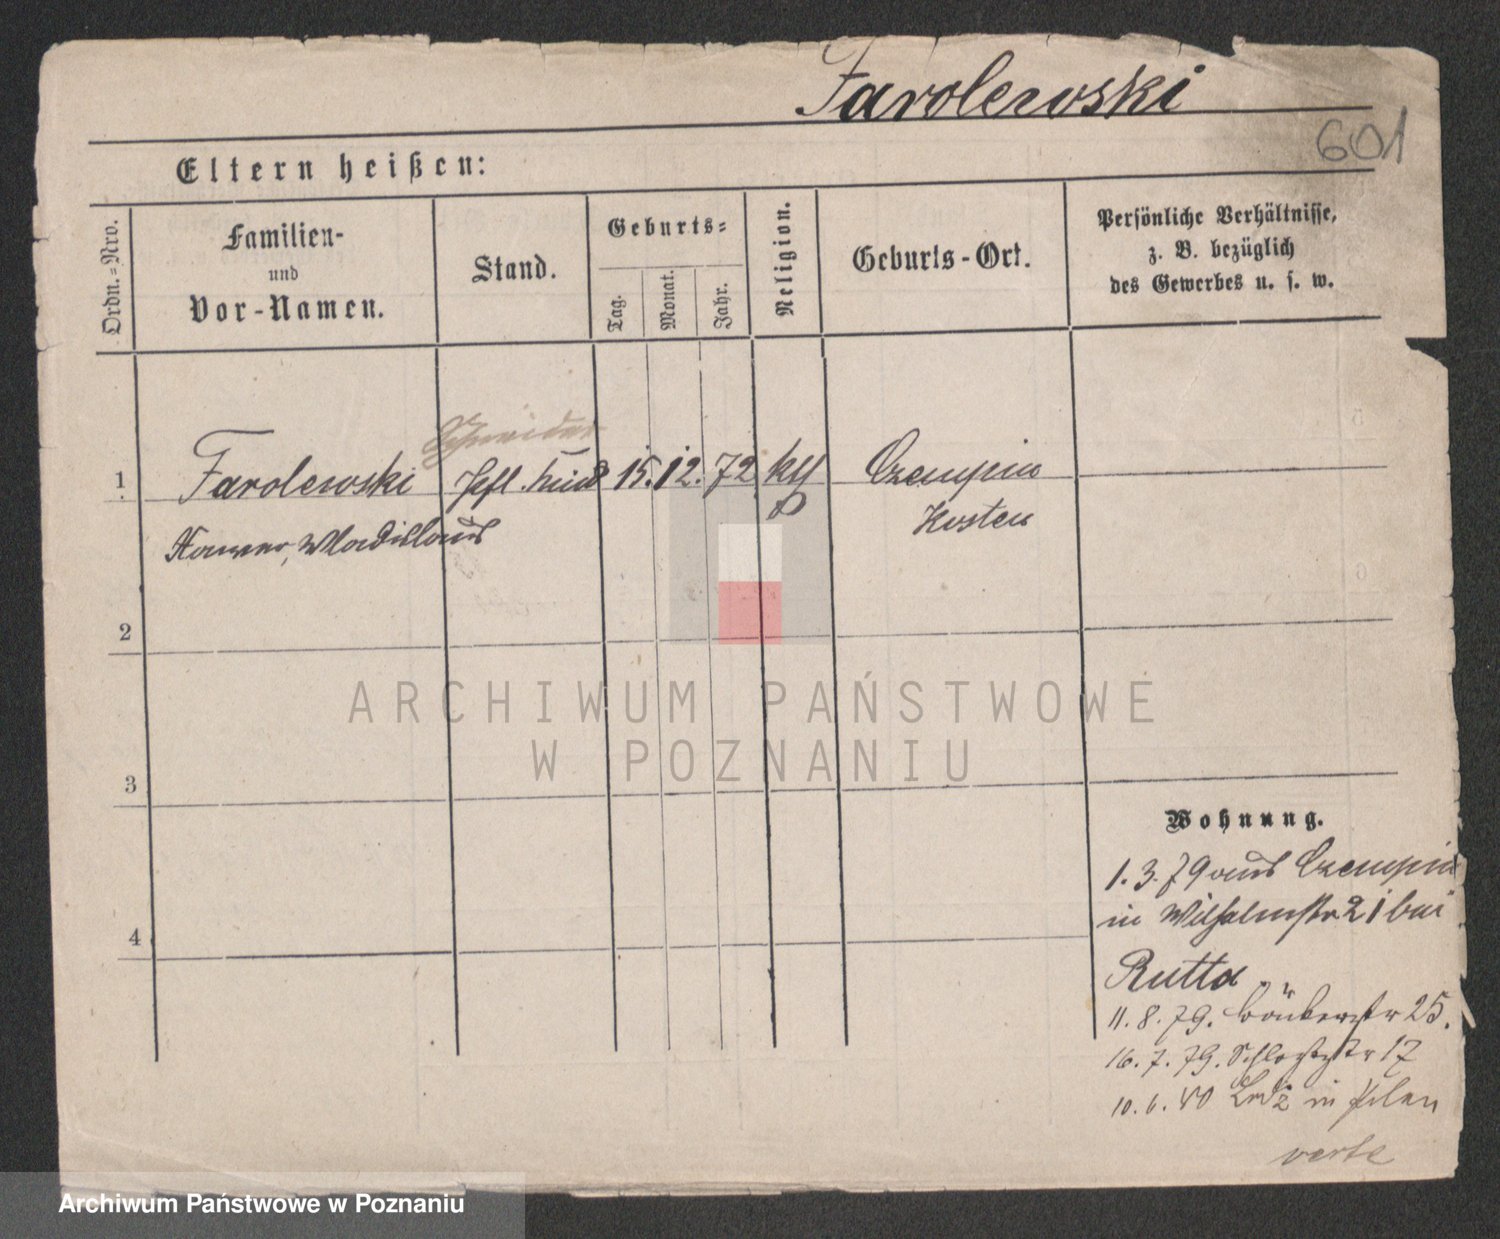 Farolewski
601
Eltern heißen:
Ordn.=Nro.
Familien-
und
Vor-Namen.
Stand.
Geburts=
Tag.
Monat.
Jahr.
Religion.
Geburts-Ort.
Persönliche Verhältnisse,
z. B. bezüglich
des Gewerbes u. s. w.
Schneider
1 Farolewski 15. 12. 72 Czempin
Wladislaus Kosten
2
3
4
ARCHIWUM PAŃSTWOWE
W POZNANIU
Wohnung.
1. 3. 79 aus Czempin
in Wilhelmstr 21 bei
Rutta
11. 8. 79. 25.
16. 7. 79. Schloßstr 17
10. 6. 80 in
verte
Archiwum Państwowe w Poznaniu